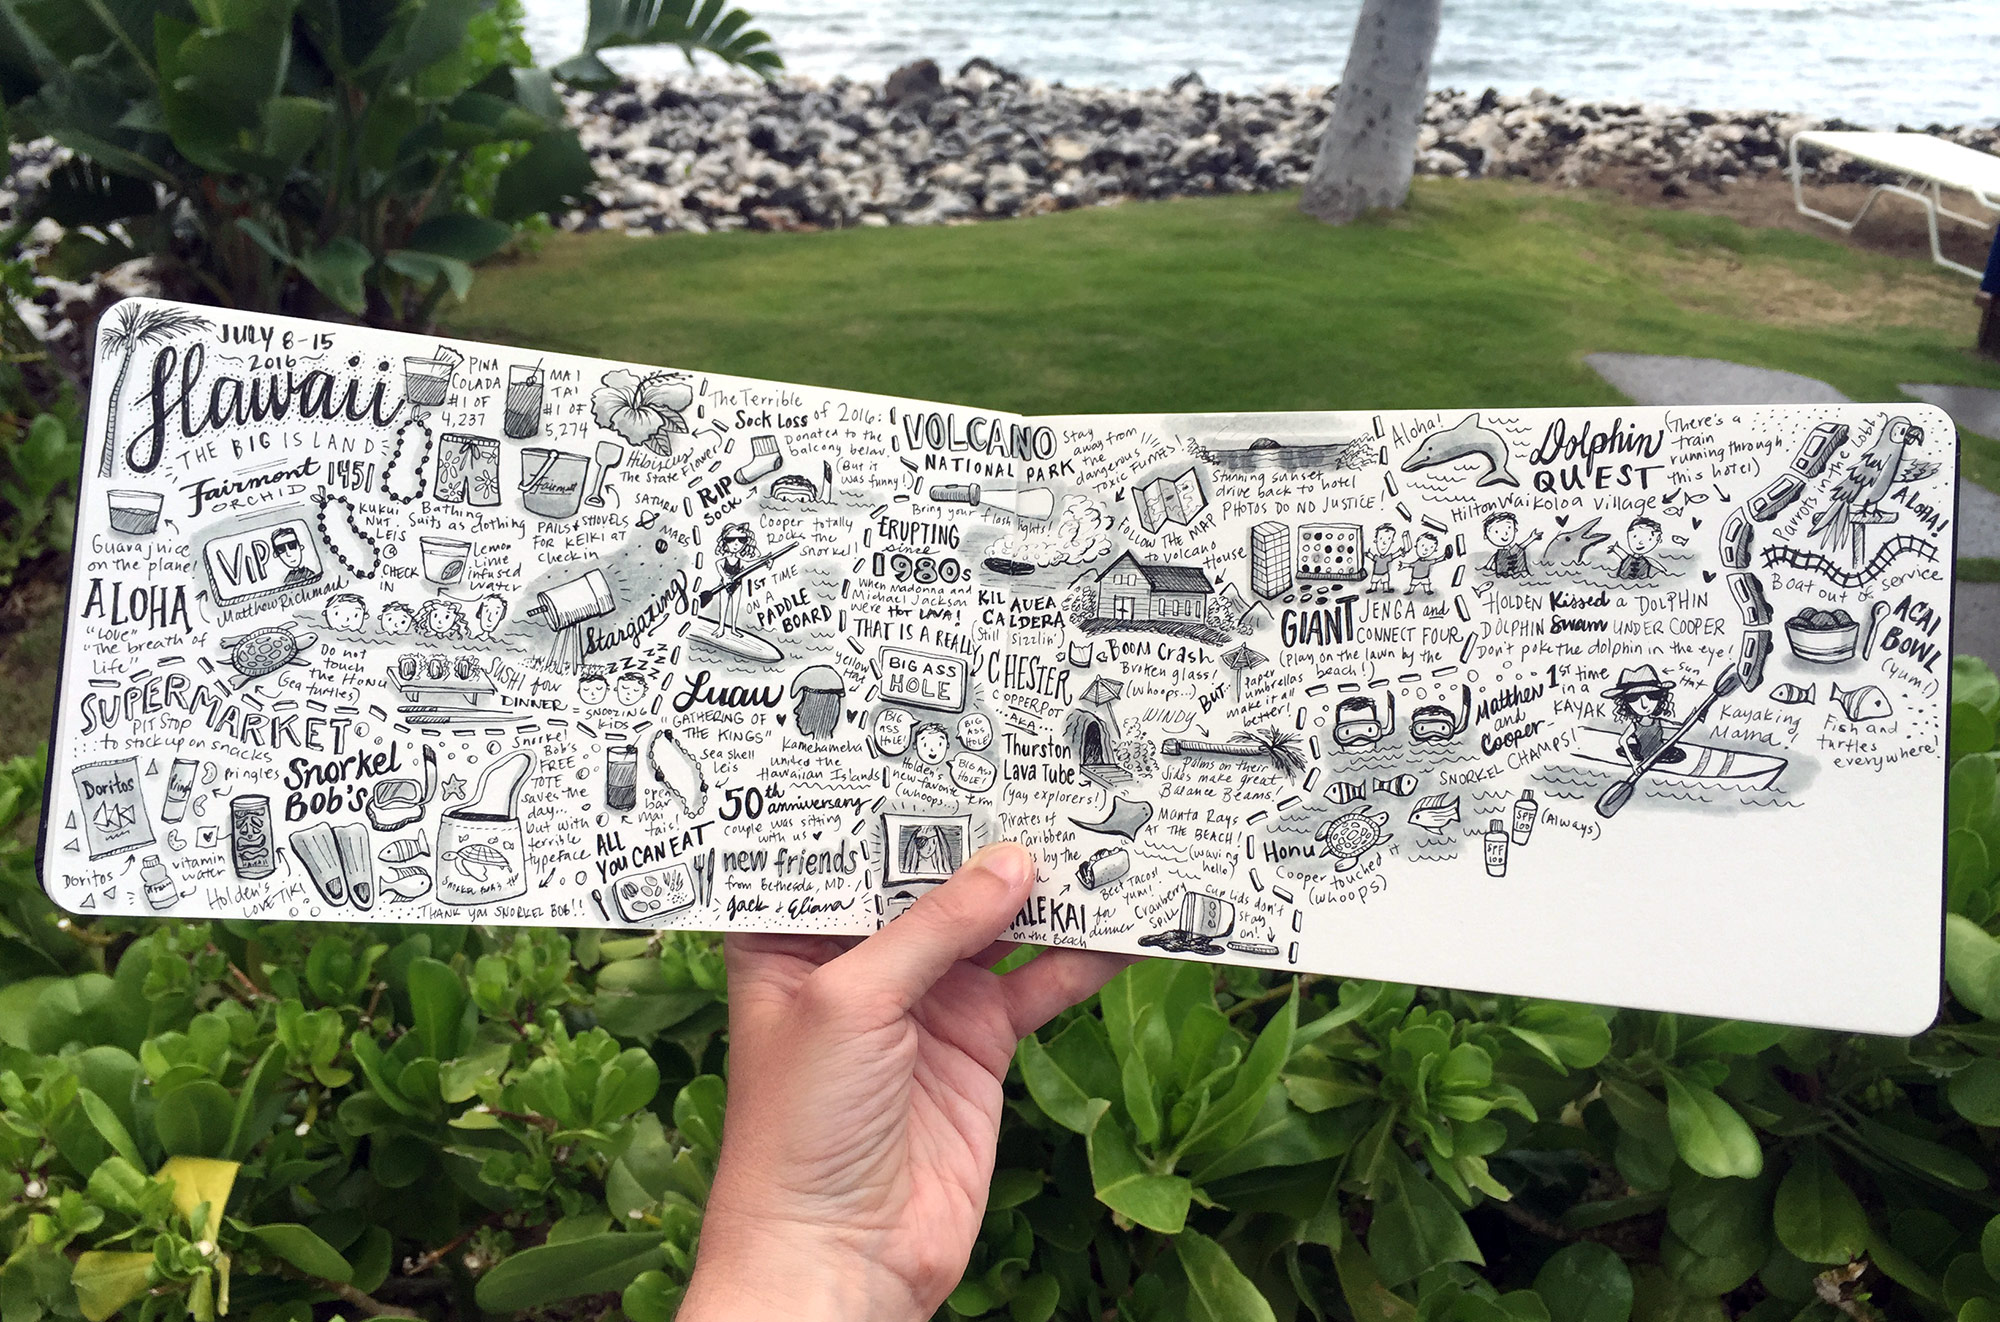 JULY 8-15
2016
Hawaii
THE BIG ISLAND
Fairmont
ORCHID
1451
PINA
COLADA
#1 OF
4,237
MAI
TAI
#1 OF
5,274
Hibiscus
The State Flower
Guava juice
on the plane!
VIP
Matthew Richmond
KUKUI
NUT
LEIS
@
CHECK
IN
Bathing
Suits as clothing
Fairmont
PAILS & SHOVELS
FOR KEIKI AT
check in
Lemon
Lime
infused
water
SATURN
MARS
Stargazing
ALOHA
"LOVE"
"The breath of
life"
Do not
touch
the Honu
(Sea turtles)
SUSHI for
DINNER
= SNOOZING
KIDS
ZZZZ
SUPERMARKET
PIT STOP
to stock up on snacks
Doritos
Doritos
Pringles
vitamin
water
Holden's
LOVE TIKI
Snorkel
BOB'S
Snorkel
Bob's
FREE
TOTE
saves the
day...
but with
terrible
typeface
THANK YOU SNORKEL BOB!!
The Terrible
Sock Loss of 2016:
Donated to the
balcony below.
(But it
was funny!)
RIP
SOCK
Cooper totally
Rocks the
snorkel!
1ST TIME
ON A
PADDLE
BOARD
Luau
"GATHERING OF
THE KINGS"
Yellow
Hat
Kamehameha
united the
Hawaiian Islands
Sea shell
Leis
open
bar
mai
tais!
ALL
YOU CAN EAT
50th
anniversary
couple was sitting
with us
new friends
from Bethesda, MD.
Jack & Eliana
VOLCANO
NATIONAL PARK
Stay
away from
the
dangerous
toxic fumes
Bring your flash lights!
ERUPTING
since
1980s
When Madonna and
Michael Jackson
were HOT LAVA!
THAT IS A REALLY
BIG ASS
HOLE
BIG
ASS
HOLE!
BIG
ASS
HOLE!
BIG ASS
HOLE!
Holden's
new favorite term
(whoops...)
KILAUEA
CALDERA
(Still sizzlin')
CHESTER
COPPERPOT
...AKA...
Thurston
Lava Tube
(yay explorers!)
Pirates of
Caribbean
by the
KAI
for
dinner
on the Beach
FOLLOW THE MAP
to Volcano
House
Stunning sunset
drive back to hotel
PHOTOS DO NO JUSTICE!
BOOM Crash
Broken glass!
(whoops...)
BUT
paper
umbrellas
make it all
better!
WINDY
Palms on their
sides make great
Balance Beams!
Manta Rays
AT THE BEACH!
(waving
hello)
Best Tacos!
yum!
Cranberry
SPILL
Cup lids don't
stay
on!
GIANT
JENGA and
CONNECT FOUR
(Play on the lawn by the
beach!)
Aloha!
Dolphin
QUEST
Hilton Waikoloa Village
(There's a
train
running through
this hotel)
HOLDEN Kissed a DOLPHIN
DOLPHIN Swam UNDER COOPER
Don't poke the dolphin in the eye!
Matthew
and
Cooper-
SNORKEL CHAMPS!
1st time
in a
KAYAK
sun
Hat
Kayaking
Mama!
Parrots in the lobby
ALOHA!
Boat out of service
ACAI
BOWL
(yum!)
Fish and
turtles
everywhere!
SPF
100
SPF
100
(Always)
Honu
Cooper touched it
(whoops)